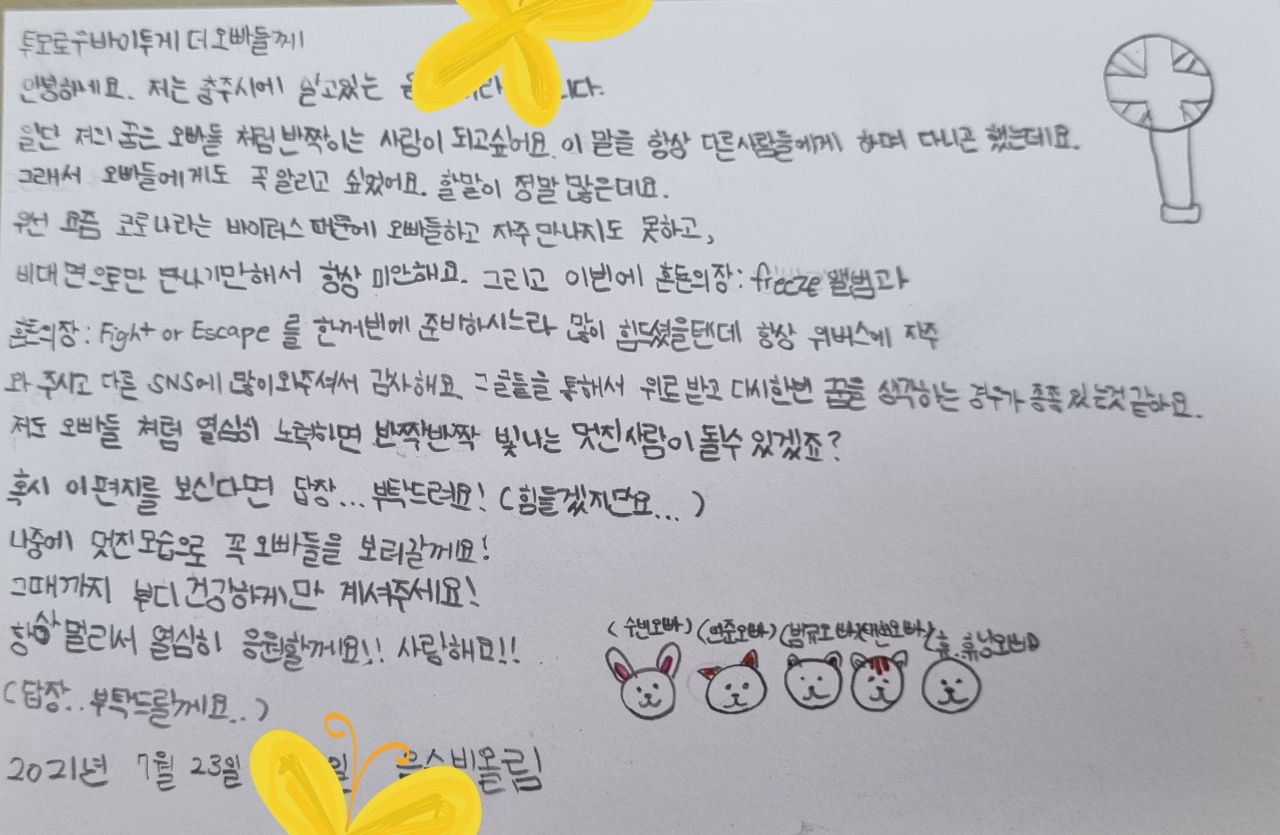 투모로우바이투게더 오빠들께!
안녕하세요. 저는 충주시에 살고있는
일단 저의 꿈은 오빠들 처럼 반짝이는 사람이 되고싶어요. 이 말을 항상 다른사람들에게 하며 다니곤 했는데요.
그래서 오빠들에게도 꼭 알리고 싶었어요. 할말이 정말 많은데요.
우선 요즘 코로나라는 바이러스 때문에 오빠들하고 자주 만나지도 못하고,
비대면으로만 만나기만해서 항상 미안해요. 그리고 이번에 혼돈의장: freeze 앨범과
혼돈의장: Fight or Escape 를 한꺼번에 준비하시느라 많이 힘드셨을텐데 항상 위버스에 자주
와 주시고 다른 SNS에 많이와주셔서 감사해요. 그글들을 통해서 위로 받고 다시한번 꿈을 생각하는 경우가 종종 있는것 같아요.
저도 오빠들 처럼 열심히 노력하면 반짝반짝 빛나는 멋진사람이 될수 있겠죠?
혹시 이편지를 보신다면 답장...부탁드려요! (힘들겠지만요...)
나중에 멋진모습으로 꼭 오빠들을 보러갈께요!
그때까지 부디 건강하게만 계셔주세요!
항상 멀리서 열심히 응원할께요!! 사랑해요!!
(수빈오빠) (연준오빠) (범규오빠) (태현오빠) (휴.휴닝오빠)
(답장..부탁드릴께요..)
2021년 7월 23일 일 은수비올림